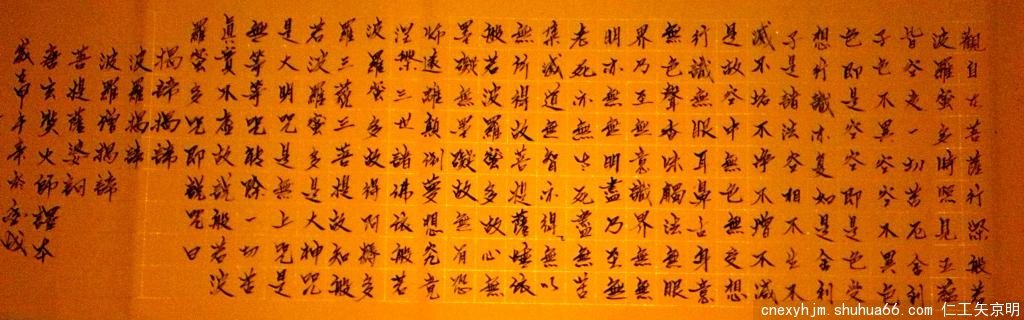 觀自在菩薩行深般若
波羅蜜多時照見五蘊
皆空度一切苦厄舍利
子色不異空空不異色
色即是空空即是色受
想行識亦復如是舍利
子是諸法空相不生不
滅不垢不淨不增不減
是故空中無色無受想
行識無眼耳鼻舌身意
無色聲香味觸法無眼
界乃至無意識界無無
明亦無無明盡乃至無
老死亦無老死盡無苦
集滅道無智亦無得以
無所得故菩提薩埵依
般若波羅蜜多故心無
罣礙無罣礙故無有恐
怖遠離顛倒夢想究竟
涅槃三世諸佛依般若
波羅蜜多故得阿耨多
羅三藐三菩提故知般
若波羅蜜多是大神咒
是大明咒是無上咒是
無等等咒能除一切苦
真實不虛故說般若波
羅蜜多咒即說咒曰
揭諦揭諦
波羅揭諦
波羅僧揭諦
菩提薩婆訶
唐玄奘大師譯本
甲午年於
cnexyhjm.shuhua66.com 仁工矢京明